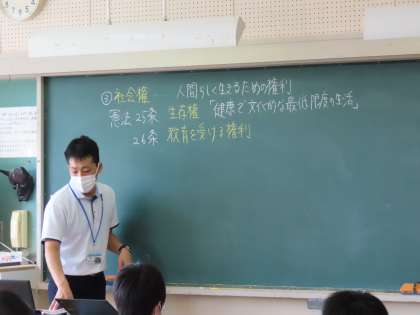 ③社会権 ― 人間らしく生きるための権利
憲法25条 生存権「健康で文化的な最低限度の生活」
26条 教育を受ける権利